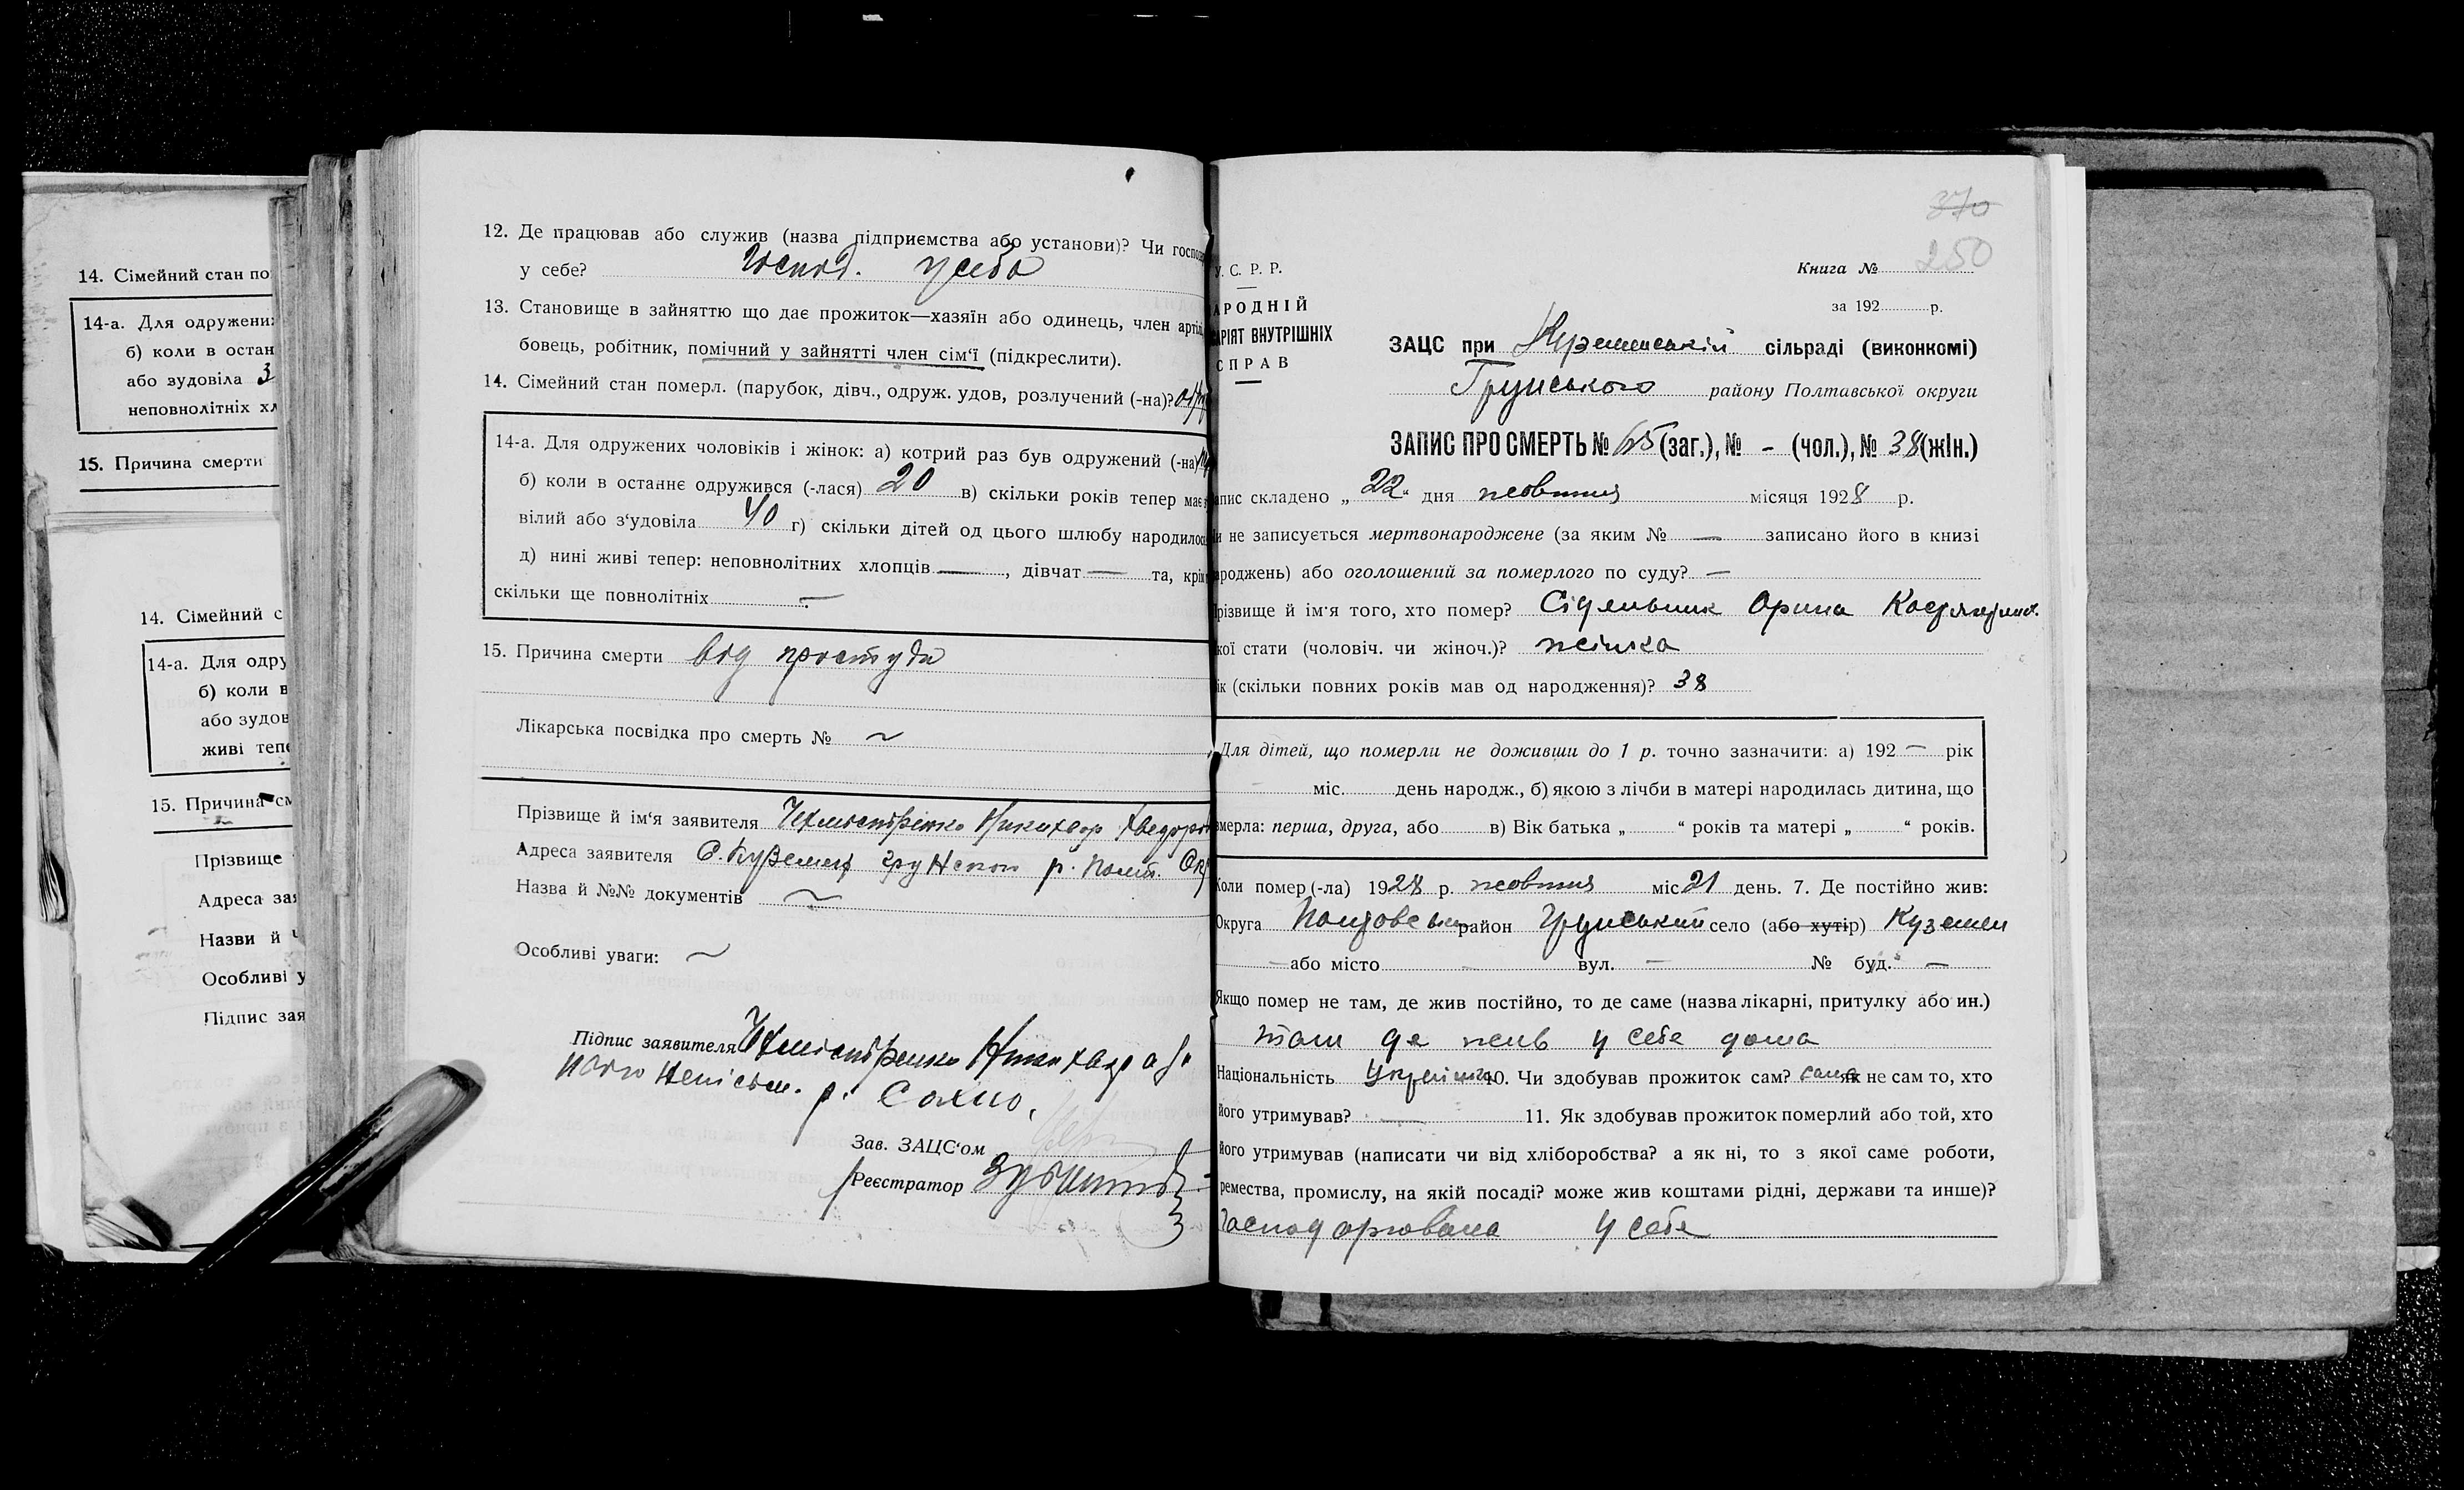 14. Сімейний стан по
14-а. Для одружених
б) коли в остан
або зудовіла 3
неповнолітніх хл
15. Причина смерти
14. Сімейний с
14-а. Для одру
б) коли в
або зудов
живі тепе
15. Причина см
Прізвище
Адреса зая
Назви й
Особливі у
Підпис зая
12. Де працював або служив (назва підприємства або установи)? Чи господ
у себе? Господ. у себе
13. Становище в зайняттю що дає прожиток—хазяїн або одинець, член артіл
бовець, робітник, помічний у зайнятті член сім'ї (підкреслити).
14. Сімейний стан померл. (парубок, дівч., одруж. удов, розлучений (-на)?
14-а. Для одружених чоловіків і жінок: а) котрий раз був одружений (-на)
б) коли в останнє одружився (-лася) 20 в) скільки років тепер має
вілий або з'удовіла 40 г) скільки дітей од цього шлюбу народилос
д) нині живі тепер: неповнолітних хлопців —, дівчат — та, крім
скільки ще повнолітніх —
15. Причина смерти від простуди
Лікарська посвідка про смерть № ~
Прізвище й ім'я заявителя Никихвор Хведоров
Адреса заявителя С. Куземен Грунского р. Полт. Окр
Назва й №№ документів ~
Особливі уваги: ~
Підпис заявителя Никихвора
р. Сахно.
Зав. ЗАЦС'ом
Реєстратор
370
250
У. С. Р. Р.
АРОДНІЙ
АРІЯТ ВНУТРІШНІХ
СПРАВ
Книга №
за 192 р.
ЗАЦС при Куземенській сільраді (виконкомі)
Грунського району Полтавської округи
ЗАПИС ПРО СМЕРТЬ № 65 (заг.), № - (чол.), № 38 (жін.)
апис складено „22" дня жовтня місяця 1928 р.
и не записується мертвонароджене (за яким № — записано його в книзі
ароджень) або оголошений за померлого по суду? —
Прізвище й ім'я того, хто помер? Сідельник Орина
кої стати (чоловіч. чи жіноч.)? жінка
ік (скільки повних років мав од народження)? 38
Для дітей, що померли не доживши до 1 р. точно зазначити: а) 192 — рік
міс. день народж., б) якою з лічби в матері народилась дитина, що
мерла: перша, друга, або в) Вік батька „ " років та матері „ " років.
Коли помер (-ла) 1928 р. жовтня міс 21 день. 7. Де постійно жив:
Округа район Грунський село (або хутір) Куземен
— або місто — вул. — № буд. —
Якщо помер не там, де жив постійно, то де саме (назва лікарні, притулку або ин.)
там де жив у себе дома
Національність 10. Чи здобував прожиток сам? сама як не сам то, хто
його утримував? — 11. Як здобував прожиток померлий або той, хто
його утримував (написати чи від хліборобства? а як ні, то з якої саме роботи,
ремества, промислу, на якій посаді? може жив коштами рідні, держави та инше)?
Господарювала у себе